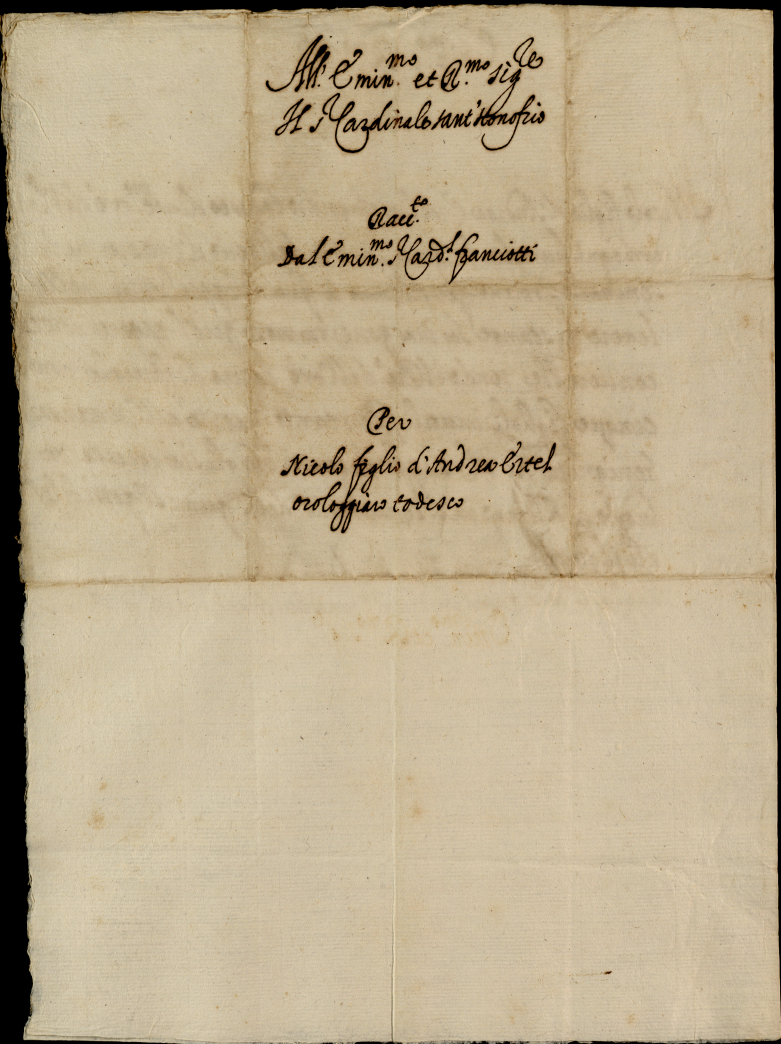 All' Emin.mo et R.mo Sig.re
Il S.r Cardinale sant'Honofrio
Racc.to
Dal Emin.mo S.r Card.l franciotti
Per
Nicolo figlio d'Andrea Ertel
orologgiaro todesco